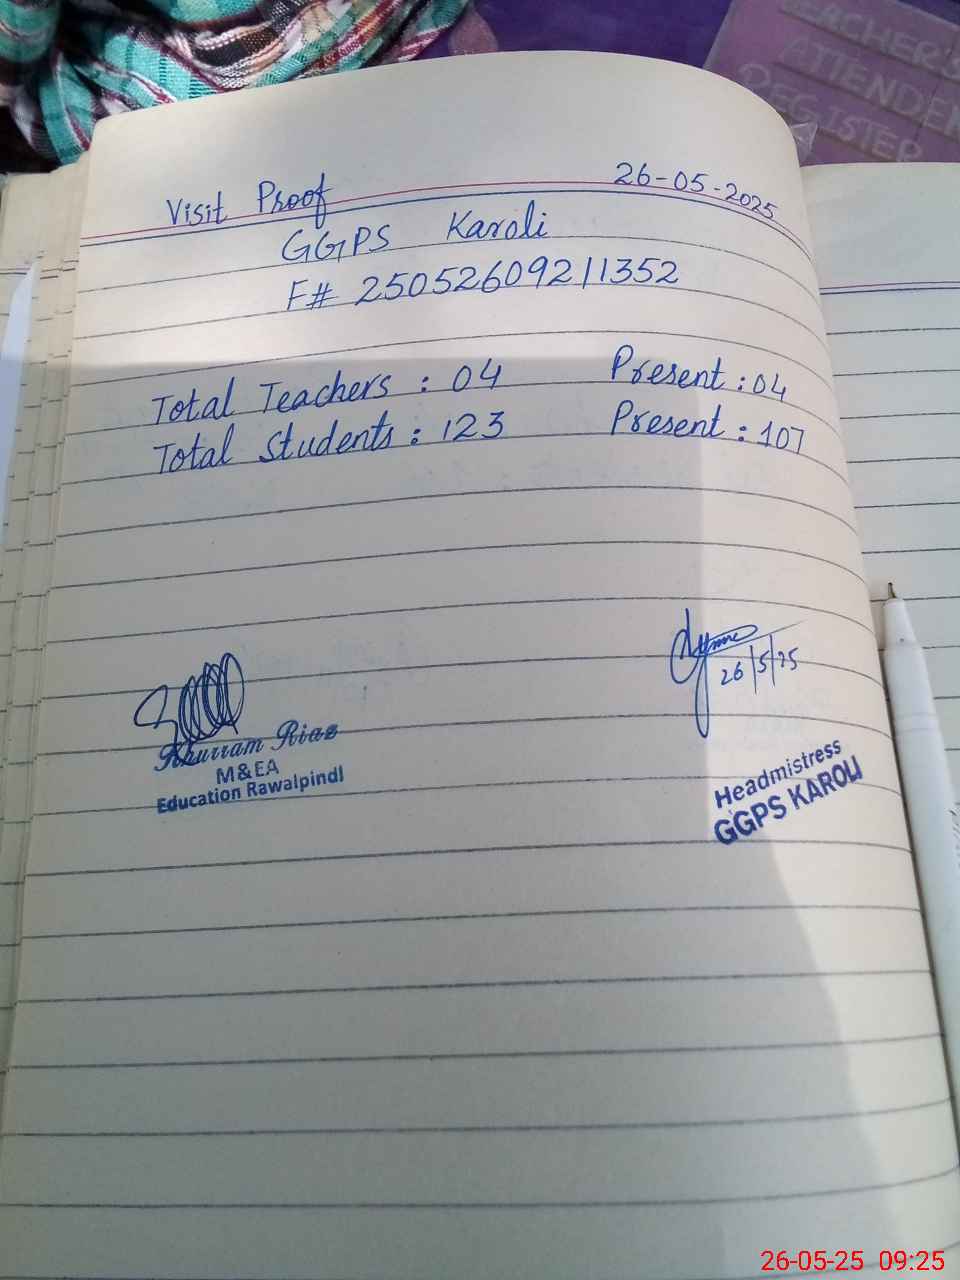 TEACHER'S
ATTENDEN
REGISTER
Visit Proof
26-05-2025
GGPS Karoli
F# 25052609211352
Total Teachers : 04 Present : 04
Total Students : 123 Present : 107
26/5/25
Khurram Riaz
M&EA
Education Rawalpindi
Headmistress
GGPS KAROLI
26-05-25 09:25